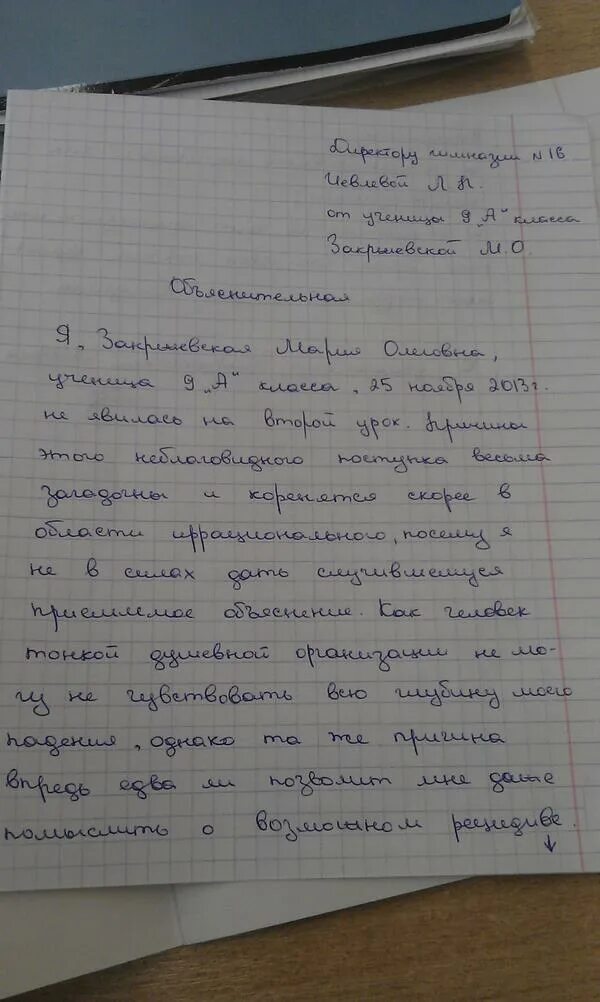 Директору гимназии №16
Иевлевой Л.Н.
от ученицы 9 „А" класса
Закржевской М.О.
Объяснительная
Я, Закржевская Мария Олеговна,
ученица 9 „А" класса, 25 ноября 2013г.
не явилась на второй урок. Причины
этого неблаговидного поступка весьма
загадочны и коренятся скорее в
области иррационального, посему я
не в силах дать случившемуся
приемлемое объяснение. Как человек
тонкой душевной организации не мо-
гу не чувствовать всю глубину моего
падения, однако та же причина
впредь едва ли позволит мне даже
помыслить о возможном рецидиве.
↓